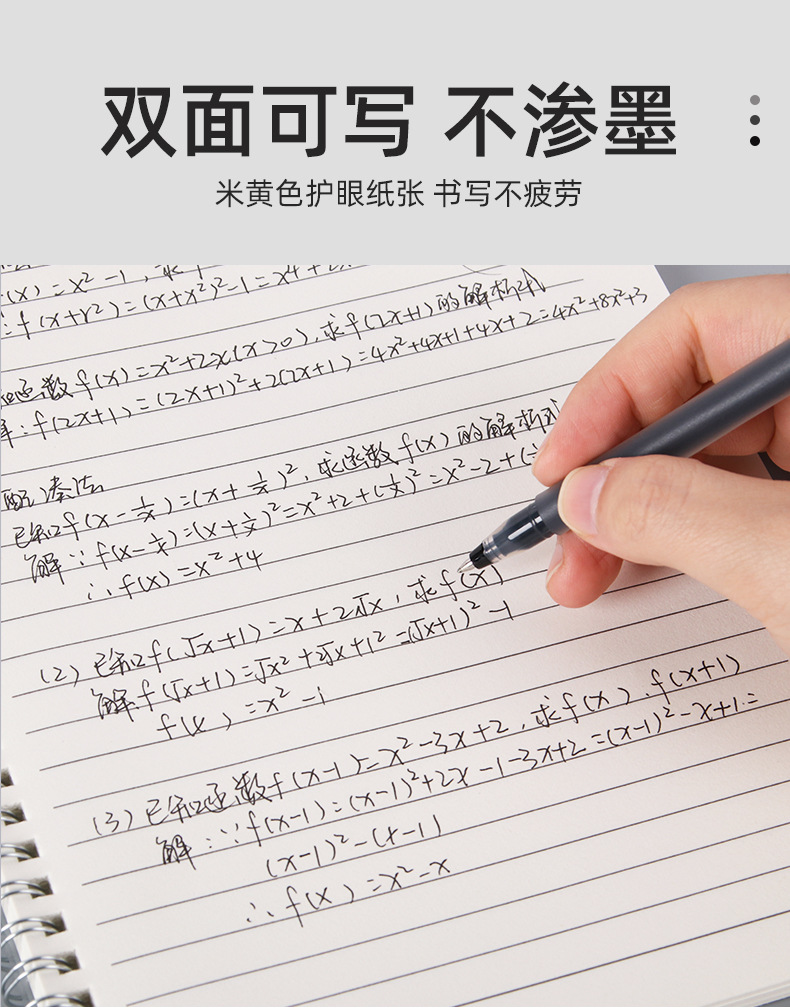 双面可写 不渗墨
米黄色护眼纸张 书写不疲劳
(x)=x²-1,求f
:f(x+x²)=(x+x²)²-1=x⁴+2
函数f(x)=x²+2x(x>0),求f(2x+1)的解析式
解:f(2x+1)=(2x+1)²+2(2x+1)=4x²+4x+1+4x+2=4x²+8x²+3
配凑法
已知f(x-1/x)=(x+1/x)²,求函数f(x)的解析式
解:∵f(x-1/x)=(x+1/x)²=x²+2+(1/x)²=x²-2+(
∴f(x)=x²+4
(2)已知f(√x+1)=x+2√x,求f(x)
解:f(√x+1)=√x²+2√x+1²=(√x+1)²-1
f(x)=x²-1
(3)已知函数f(x-1)=x²-3x+2,求f(x),f(x+1)
解:∵f(x-1)=(x-1)²+2x-1-3x+2=(x-1)²-x+1=
(x-1)²-(x-1)
∴f(x)=x²-x